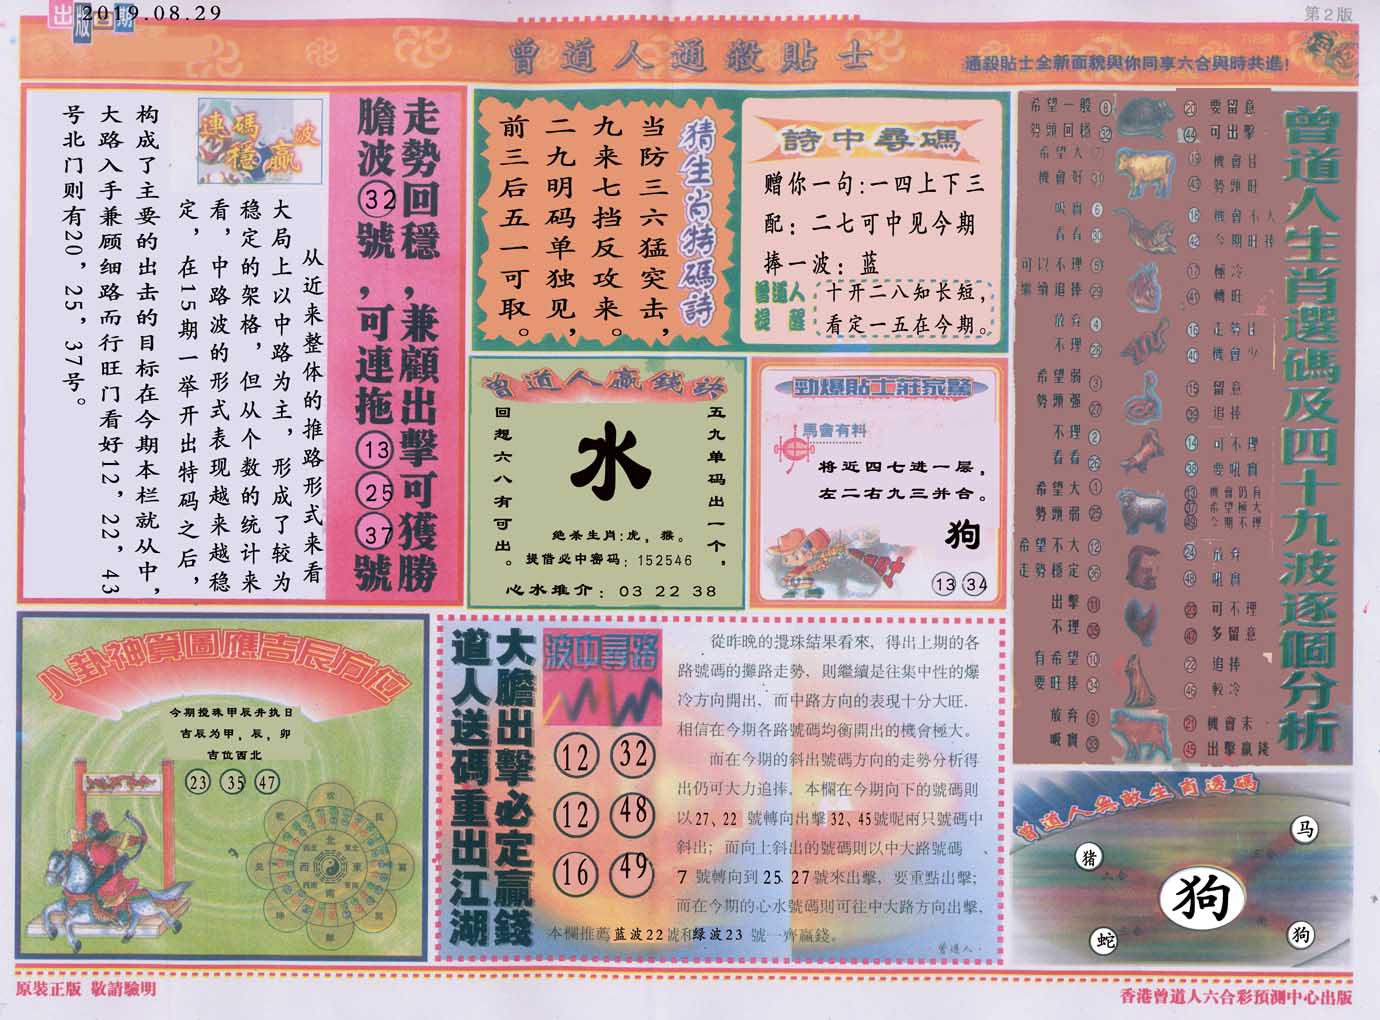 出版日期
2019.08.29
第2版
曾道人通殺貼士
通殺貼士全新面貌與你同享六合與時共進!
走勢回穩,兼顧出擊可獲勝
膽波32號,可連拖13 25 37號
連碼波
穩贏
从近来整体的推路形式来看
大局上以中路为主,形成了较为
稳定的架格,但从个数的统计来
看,中路波的形式表现越来越稳
定,在15期一举开出特码之后,
构成了主要的出击的目标在今期本栏就从中,
大路入手兼顾细路而行旺门看好12,22,43
号北门则有20,25,37号。
猜生肖特碼詩
当防三六猛突击,
九来七挡反攻来。
二九明码单独见,
前三后五一可取。
詩中尋碼
赠你一句:一四上下三
配:二七可中见今期
捧一波:蓝
曾道人
提醒
十开二八知长短,
看定一五在今期。
曾道人贏錢詩
五九单码出一个,
回想六八有可出。
水
绝杀生肖:虎,猴。
提借必中密码:152546
心水推介:03 22 38
勁爆貼士莊家驚
馬會有料
将近四七进一层,
左二右九三并合。
狗
13 34
曾道人生肖選碼及四十九波逐個分析
希望一般 8
勢頭回穩 32
希望大
機會好 31
吸實 6
看看 30
可以不理 5
繼續追捧 29
放弃 4
不理
希望弱 3
勢頭强 27
不理 2
看看 26
希望大 1
勢頭弱 25
希望不大 12
走勢穩定 36
出擊 11
不理 35
有希望 10
要旺捧 34
放弃 9
吸實 33
20 要留意
44 可出擊
19 機會佳
43 勢頭旺
18 機會不大
42 今期旺捧
17 極冷
41 轉旺
16 走勢佳
40 機會少
15 留意
39 追捧
14 可不理
38 要吸實
13 機會仍有
37 希望極大
49 今期不理
24 放弃
48 吸實
23 可不理
47 多留意
22 追捧
46 較冷
21 機會未
45 出擊贏錢
八卦神算圖應吉辰方位
今期搅珠甲辰并执日
吉辰为甲,辰,卯
吉位西北
23 35 47
北
西 東
南
大膽出擊必定贏錢
道人送碼重出江湖
波中尋路
12 32
12 48
16 49
從昨晚的攪珠結果看來,得出上期的各
路號碼的攤路走勢,則繼續是往集中性的爆
冷方向開出,而中路方向的表現十分大旺.
相信在今期各路號碼均衡開出的機會極大。
而在今期的斜出號碼方向的走勢分析得
出仍可大力追捧,本欄在今期向下的號碼則
以27、22 號轉向出擊32、45號呢兩只號碼中
斜出;而向上斜出的號碼則以中大路號碼、
7 號轉向到25 27號來出擊,要重點出擊;
而在今期的心水號碼則可往中大路方向出擊,
本欄推薦蓝波22號和绿波23 號一齊贏錢。
曾道人·
曾道人無敵生肖透碼
马
猪
狗
蛇
狗
原裝正版 敬請驗明
香港曾道人六合彩預測中心出版